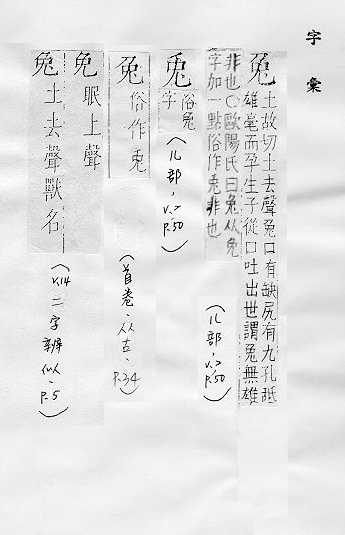 字彙
兔 土故切土去聲兔口有缺尻有九孔舐
雄毫而孕生子從口吐出世謂兔無雄
非也○歐陽氏曰兔从兔
字加一點俗作兎非也
(儿部,V.2 P.50)
兎 俗兔
字
(儿部,V.2 P.50)
兔 俗作兎
(首卷、从古、P.34)
免 眠上聲
兔 土去聲獸名
(V.14 二字辨似、P.5)